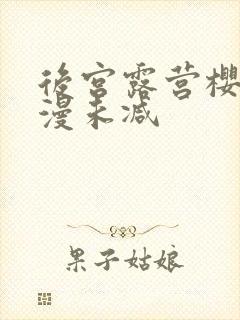 後宮露营櫻
漫未减
果子姑娘